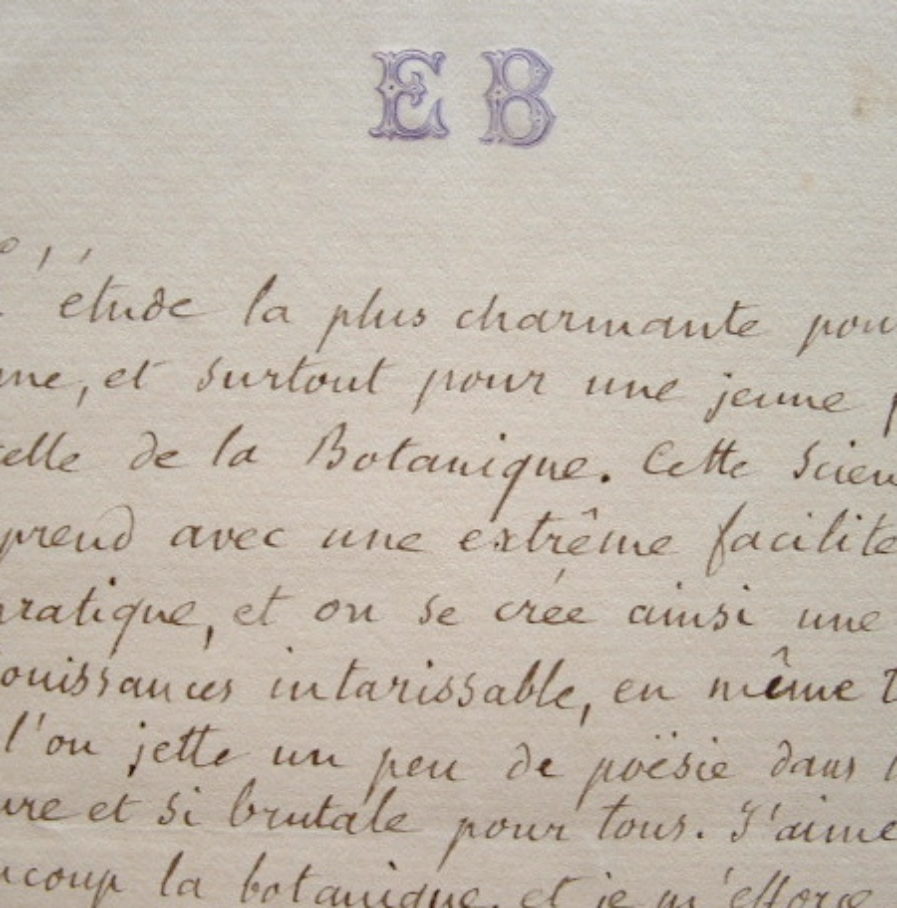 E B
L'étude la plus charmante pour
me, et surtout pour une jeune
celle de la Botanique. Cette Scien
prend avec une extrême facilité
pratique, et on se crée ainsi une
ouissances intarissable, en même t
l'on jette un peu de poësie dans l
ure et si brutale pour tous. J'aime
ucoup la botanique, et je m'efforce